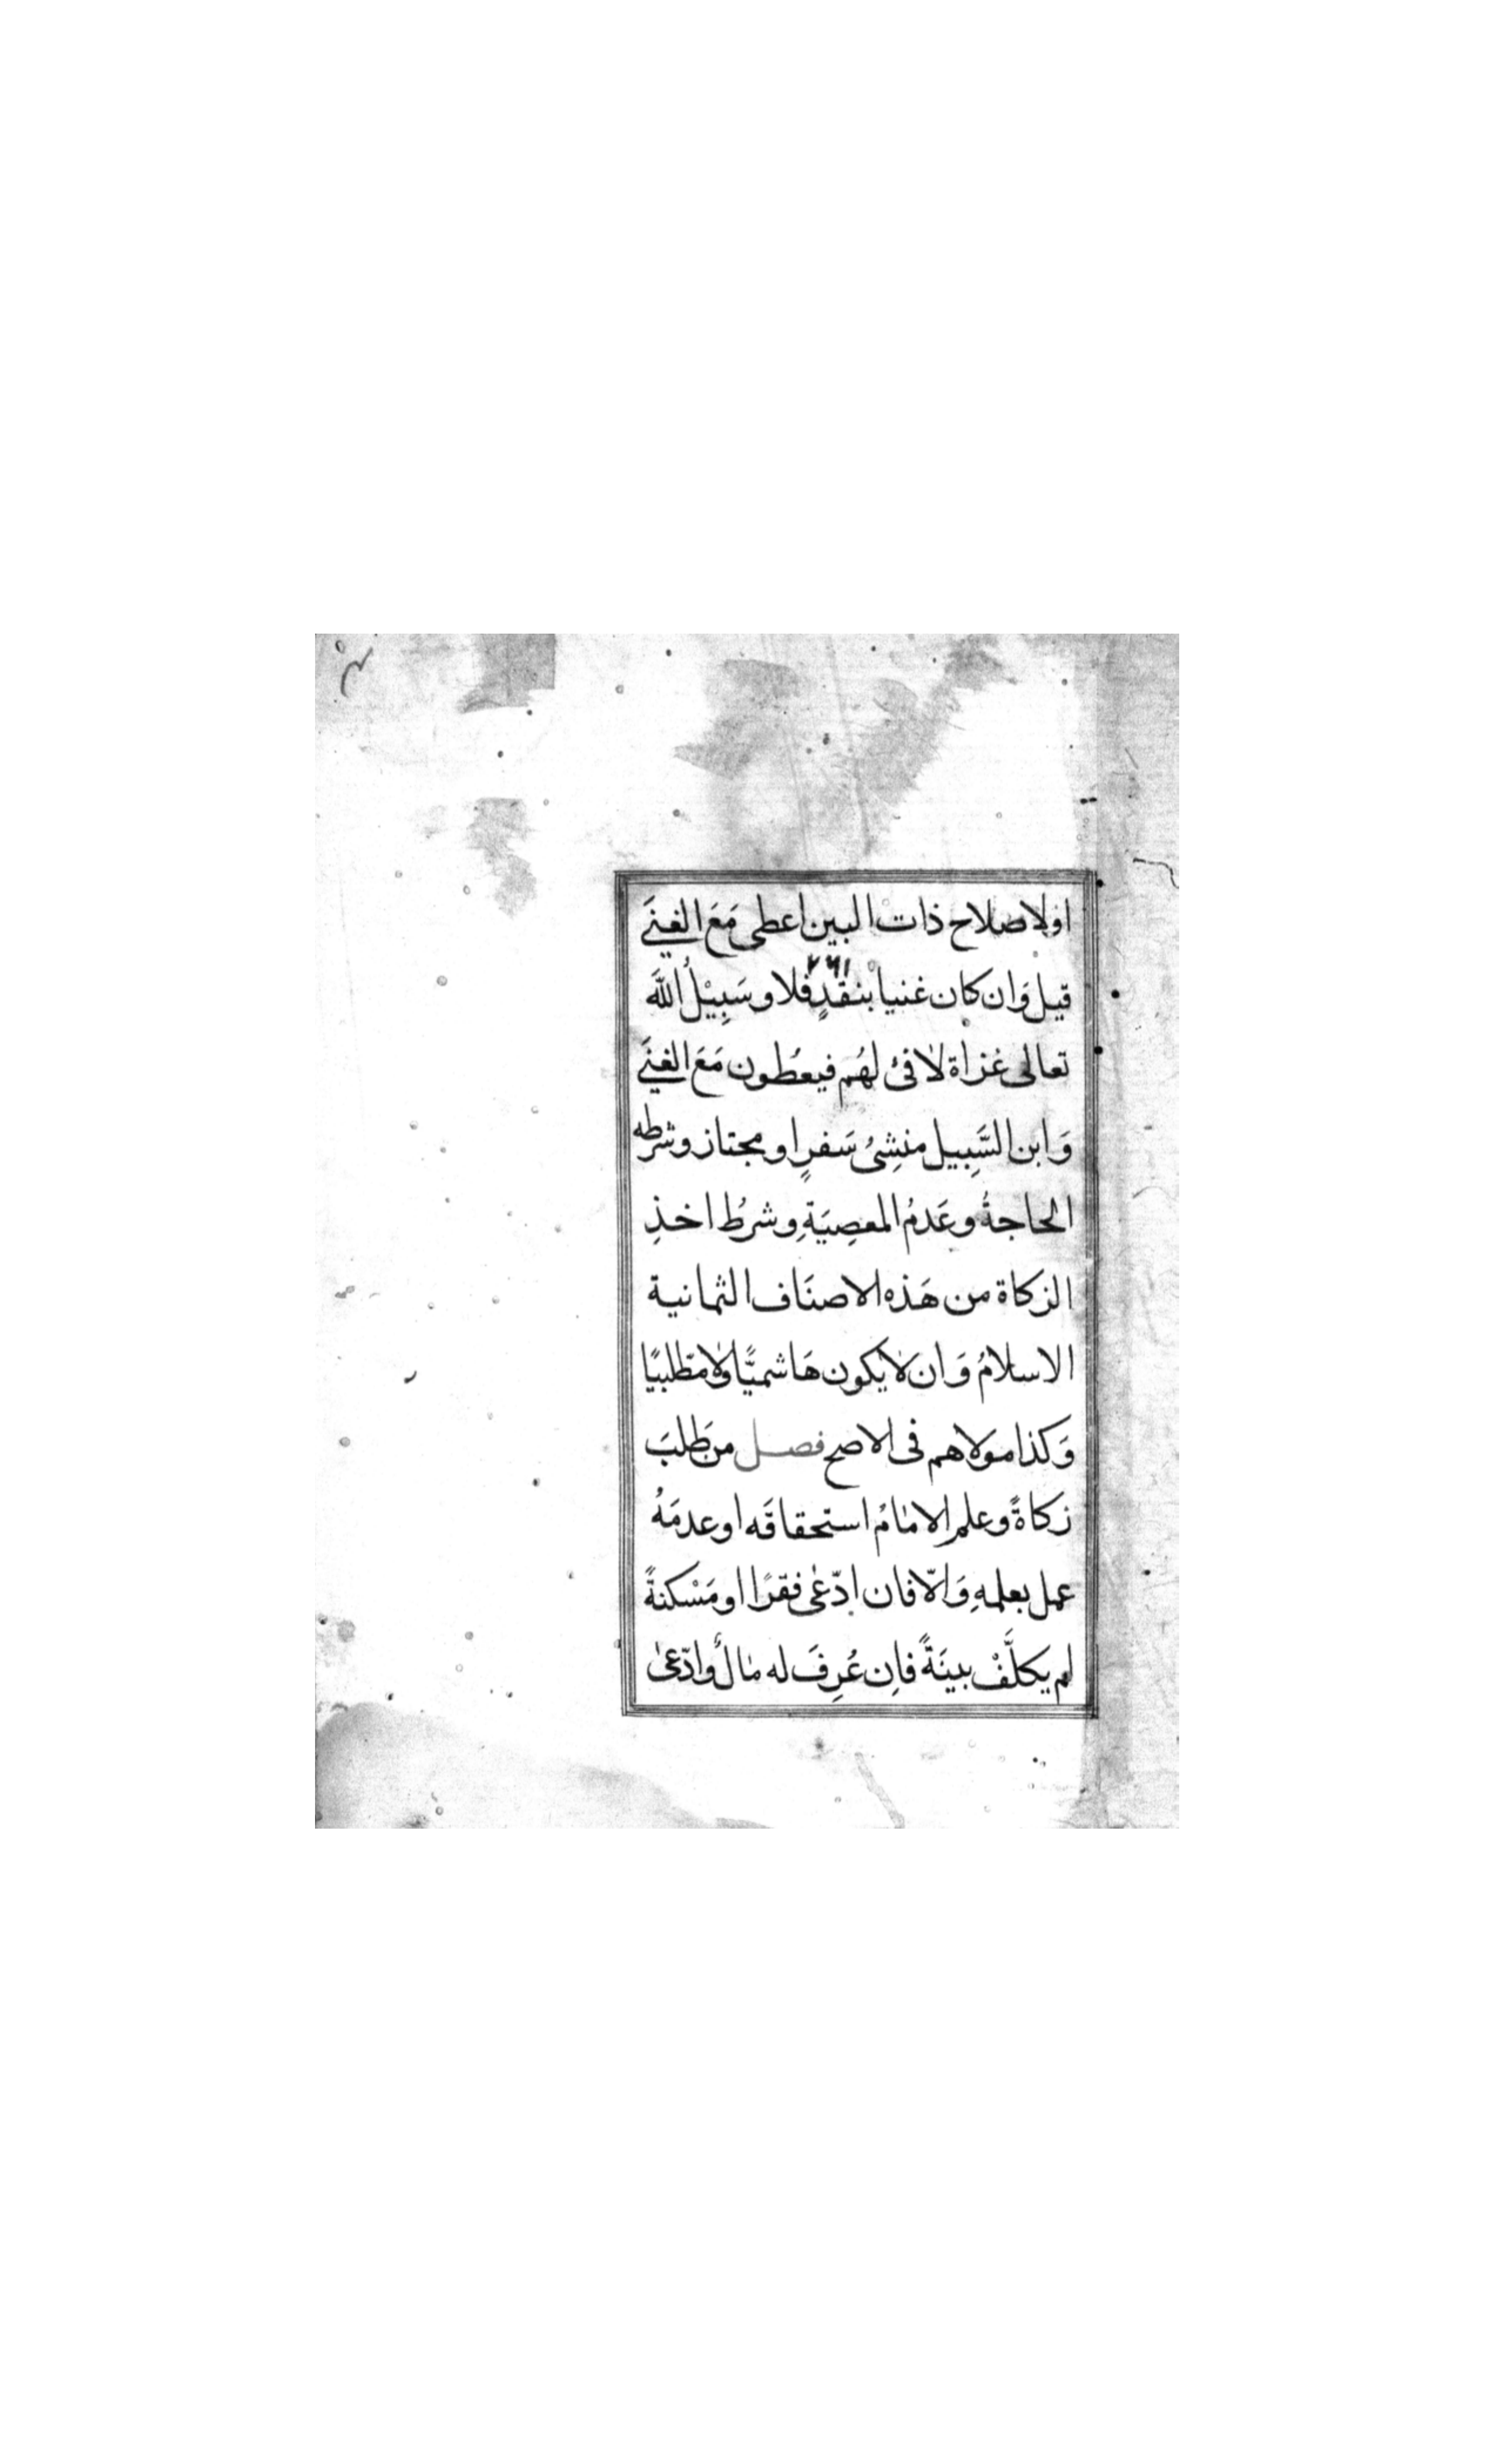 اولاصلاح ذات البين اعطى مَعَ الغِنَى
قيل وَان كان غنيا بنقدٍ فلا وسَبِيْلُ اللّه
تعالى غزاة لا فئ لهُم فيعُطون مَعَ الغِنَى
وَابن السَّبِيل منشِئُ سَفرٍ او مجتاز وشرطه
الحاجةُ وعَدمُ المعصِيَةِ وشرطُ اخذِ
الزكاة من هَذه الاصنَاف الثمانية
الاسلامُ وَان لا يكون هَاشميًّا ولا مطّلبيًا
وَكذا مولاهم فى الاصح فصل من طَلبَ
زكاةً وعلم الامامُ استحقاقَه او عدمَهُ
عمل بعلمهِ وَالّا فان ادّعٰى فقرًا او مَسْكنةً
لم يكلَّفْ بينَةً فاِن عُرِفَ له مالٌ وادّعىٰ